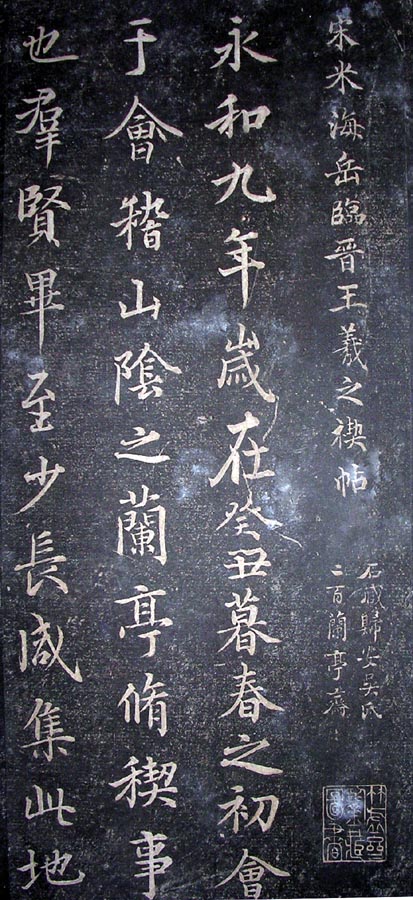 宋米海岳臨晋王羲之禊帖
石藏歸安吳氏
二百蘭亭齋
永和九年歲在癸丑暮春之初會
于會稽山陰之蘭亭脩稧事
也羣賢畢至少長咸集此地